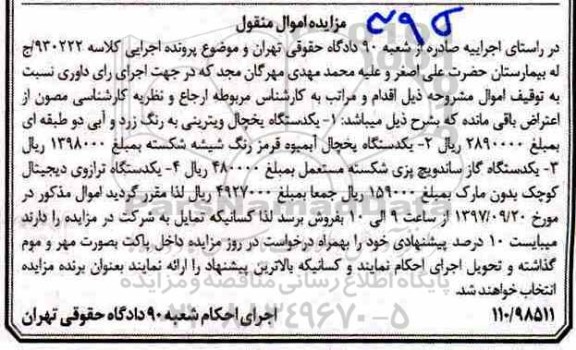 مزایده اموال منقول
در راستای اجراییه صادره از شعبه ۹۰ دادگاه حقوقی تهران و موضوع پرونده اجرایی کلاسه ۹۳۰۲۲۲/ج
له بیمارستان حضرت علی اصغر و علیه محمد مهدی مهرگان مجد که در جهت اجرای رای داوری نسبت
به توقیف اموال مشروحه ذیل اقدام و مراتب به کارشناس مربوطه ارجاع و نظریه کارشناسی مصون از
اعتراض باقی مانده که بشرح ذیل میباشد: ۱- یکدستگاه یخچال ویترینی به رنگ زرد و آبی دو طبقه ای
بمبلغ ۲۸۹۰۰۰۰ ریال ۲- یکدستگاه یخچال آبمیوه قرمز رنگ شیشه شکسته بمبلغ ۱۳۹۸۰۰۰ ریال
۳- یکدستگاه گاز ساندویچ پزی شکسته مستعمل بمبلغ ۴۸۰۰۰۰ ریال ۴- یکدستگاه ترازوی دیجیتال
کوچک بدون مارک بمبلغ ۱۵۹۰۰۰ ریال جمعا بمبلغ ۴۹۲۷۰۰۰ ریال لذا مقرر گردید اموال مذکور در
مورخ ۱۳۹۷/۰۹/۲۰ از ساعت ۹ الی ۱۰ بفروش برسد لذا کسانیکه تمایل به شرکت در مزایده را دارند
میبایست ۱۰ درصد پیشنهادی خود را بهمراه درخواست در روز مزایده داخل پاکت بصورت مهر و موم
گذاشته و تحویل اجرای احکام نمایند و کسانیکه بالاترین پیشنهاد را ارائه نمایند بعنوان برنده مزایده
انتخاب خواهند شد.
پایگاه اطلاع رسانی مناقصه و مزایده
۱۱۰/۹۸۵۱۱ اجرای احکام شعبه ۹۰ دادگاه حقوقی تهران